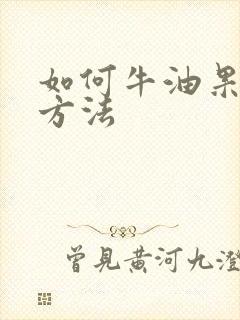 如何牛油果
方法
曾見黄河九澄